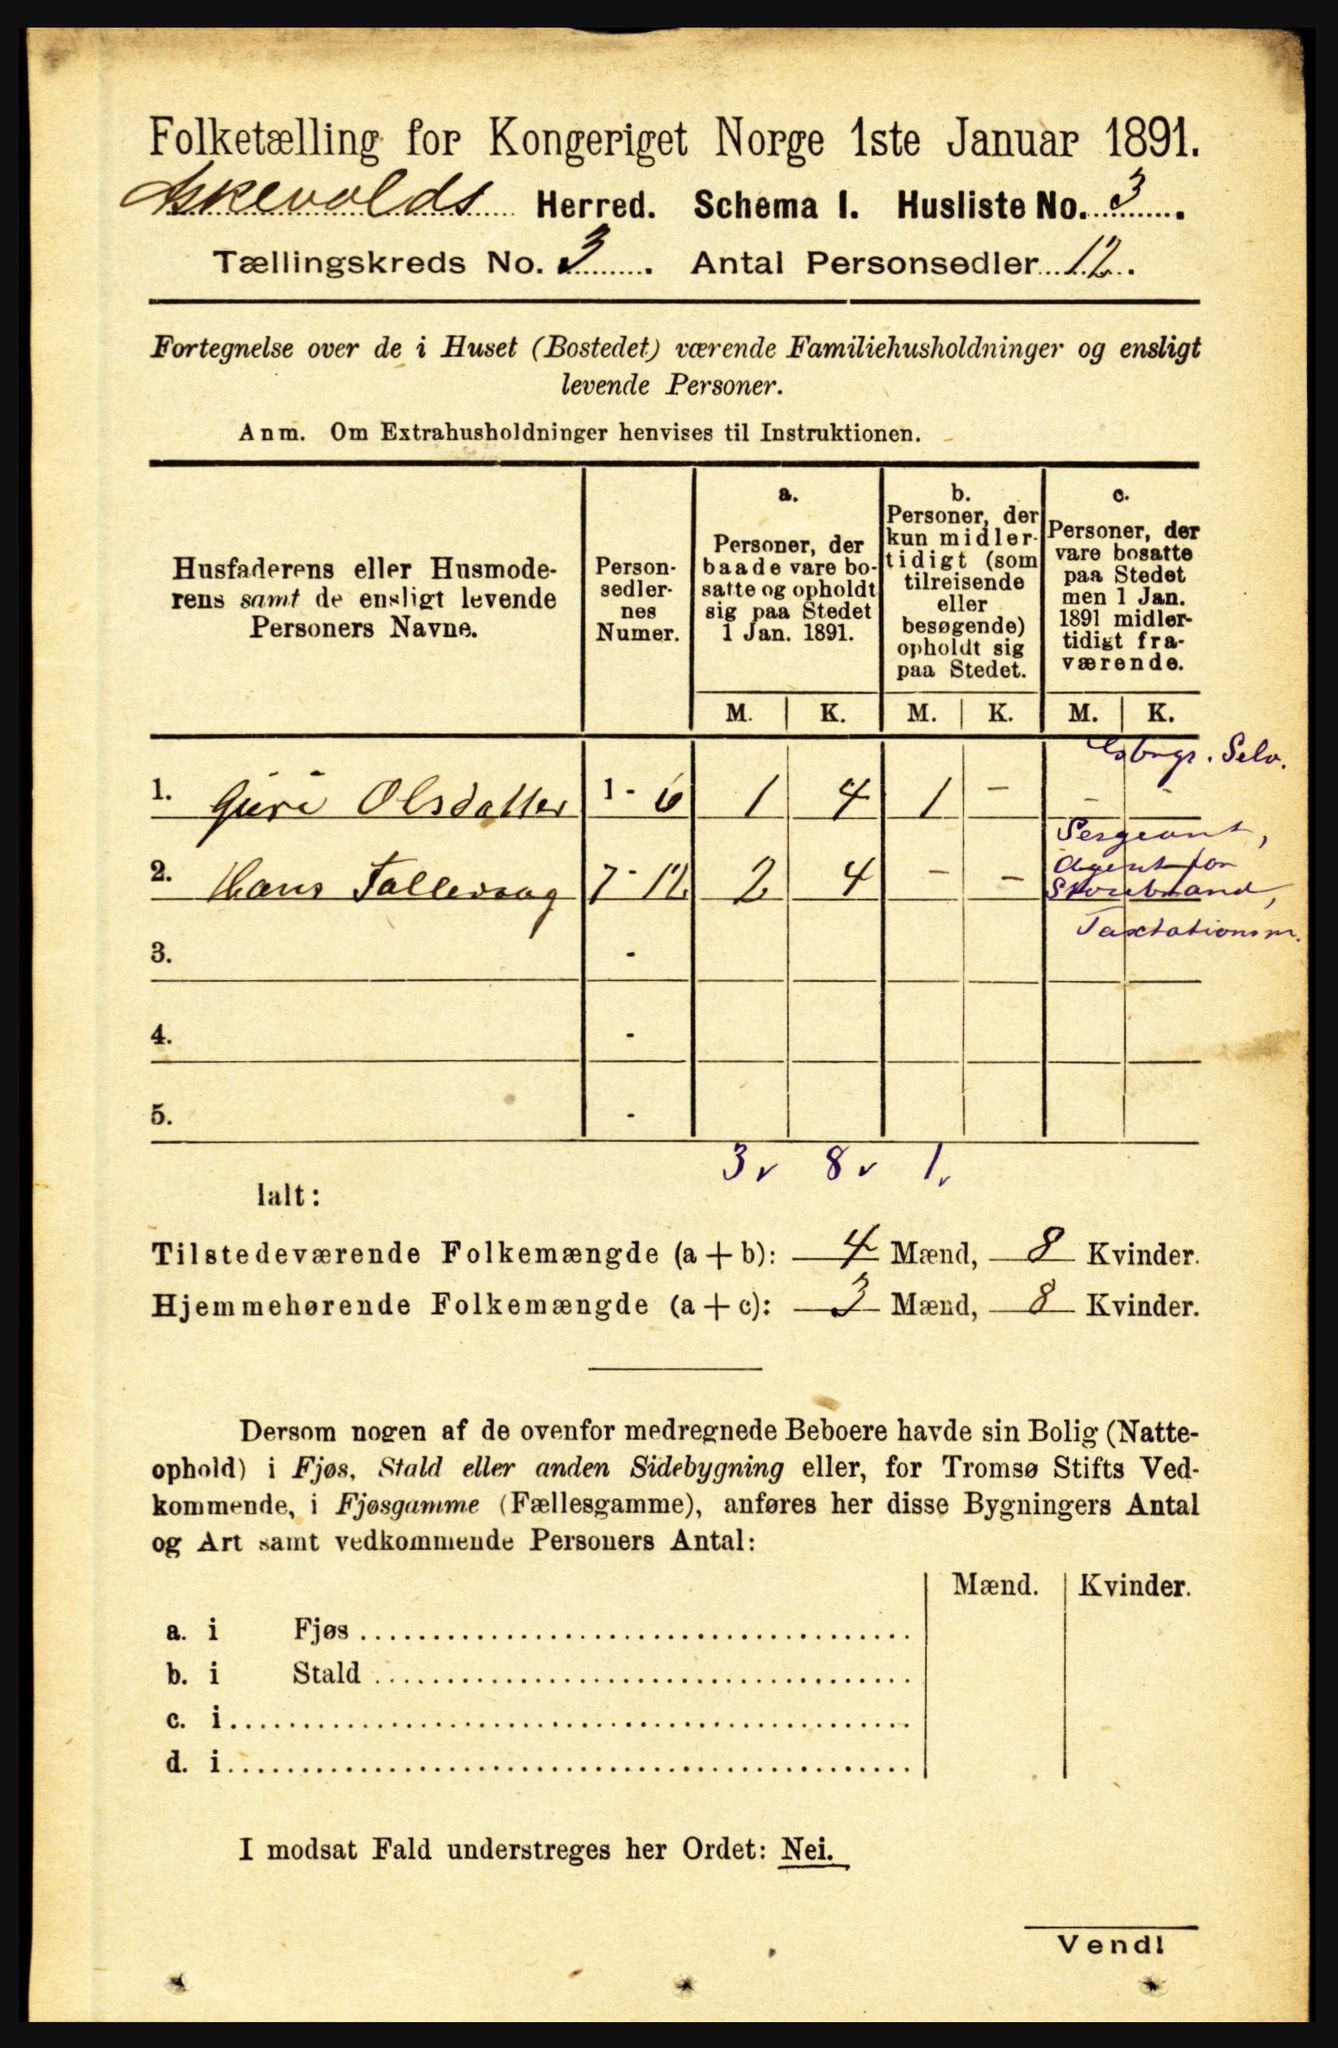 Folketælling for Kongeriget Norge 1ste Januar 1891.
Askevolds Herred. Schema I. Husliste No. 3.
Tællingskreds No. 3. Antal Personsedler 12.
Fortegnelse over de i Huset (Bostedet) værende Familiehusholdninger og ensligt
levende Personer.
Anm. Om Extrahusholdninger henvises til Instruktionen.
Husfaderens eller Husmode-
rens samt de ensligt levende
Personers Navne.
Person-
sedler-
nes
Numer.
a.
Personer, der
baade vare bo-
satte og opholdt
sig paa Stedet
1 Jan. 1891.
b.
Personer, der
kun midler-
tidigt (som
tilreisende
eller
besøgende)
opholdt sig
paa Stedet.
c.
Personer, der
vare bosatte
paa Stedet
men 1 Jan.
1891 midler-
tidigt fra-
værende.
M. K. M. K. M. K.
Gbrgr. Selv.
1. Guri Olsdatter 1 - 6 1 4 1 - - -
Sergeant,
Agent for
2. Hans Tollevaag 7 - 12 2 4 - - Storebrand,
Taxtationsm.
3. -
4. -
5. -
3 v 8 v 1 v
Ialt:
Tilstedeværende Folkemængde (a + b): 4 Mænd, 8 Kvinder.
Hjemmehørende Folkemængde (a + c): 3 Mænd, 8 Kvinder.
Dersom nogen af de ovenfor medregnede Beboere havde sin Bolig (Natte-
ophold) i Fjøs, Stald eller anden Sidebygning eller, for Tromsø Stifts Ved-
kommende, i Fjøsgamme (Fællesgamme), anføres her disse Bygningers Antal
og Art samt vedkommende Personers Antal:
Mænd. Kvinder.
a. i Fjøs
b. i Stald
c. i
d. i
I modsat Fald understreges her Ordet: Nei.
Vend!